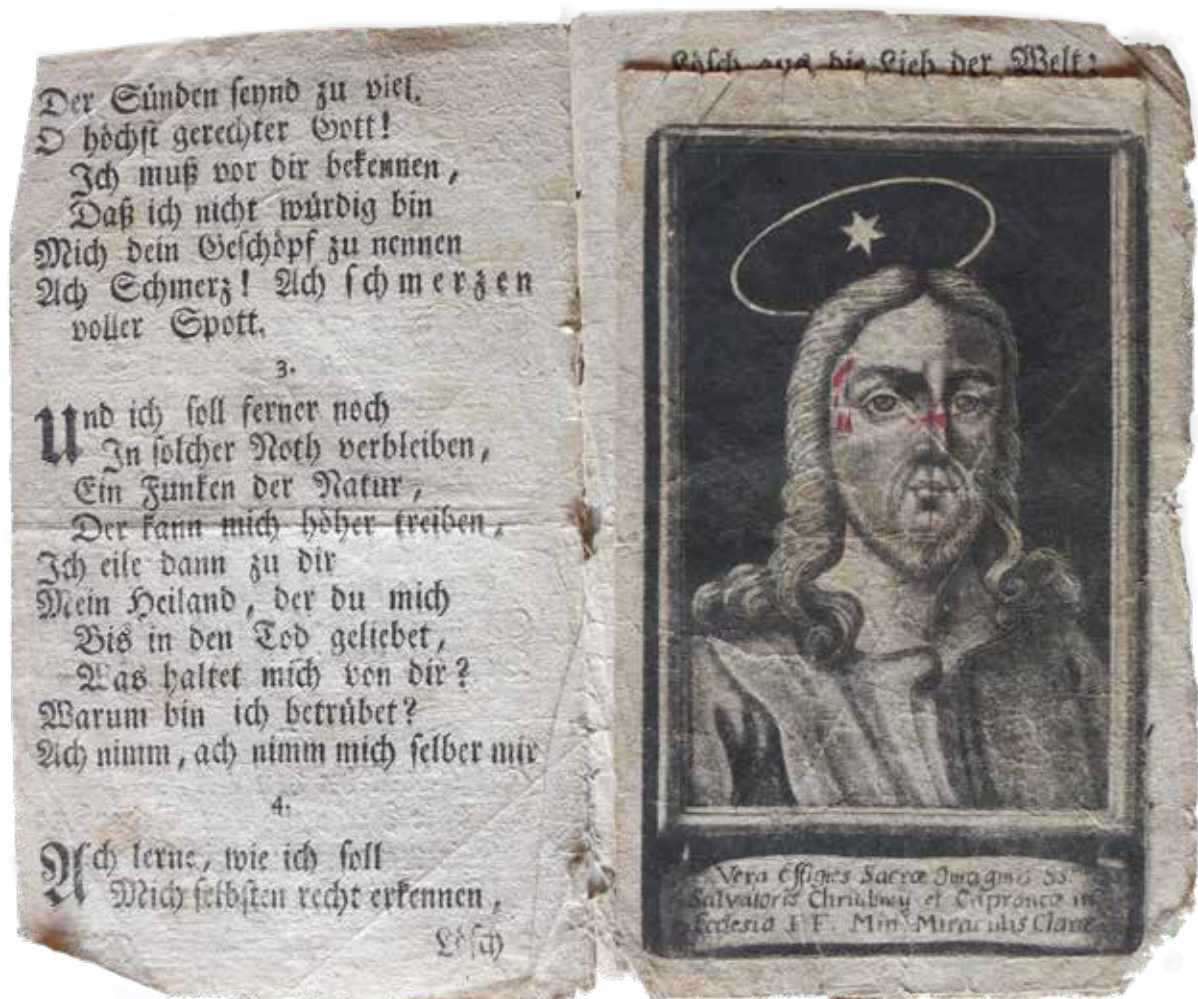 Der Sünden seynd zu viel.
O höchst gerechter Gott!
Ich muß vor dir bekennen,
Daß ich nicht würdig bin
Mich dein Geschöpf zu nennen
Ach Schmerz! Ach schmerzen
voller Spott.
3.
Und ich soll ferner noch
In solcher Noth verbleiben,
Ein Funken der Natur,
Der kann mich höher treiben,
Ich eile dann zu dir
Mein Heiland, der du mich
Bis in den Tod geliebet,
Was haltet mich von dir?
Warum bin ich betrübet?
Ach nimm, ach nimm mich selber mir
4.
Ach lerne, wie ich soll
Mich selbsten recht erkennen,
Lösch
Lösch aus die Lieb der Welt:
Vera Effigies Sacræ Imaginis SS
Salvatoris et in
Ecclesia F F. Min Miraculis Claræ